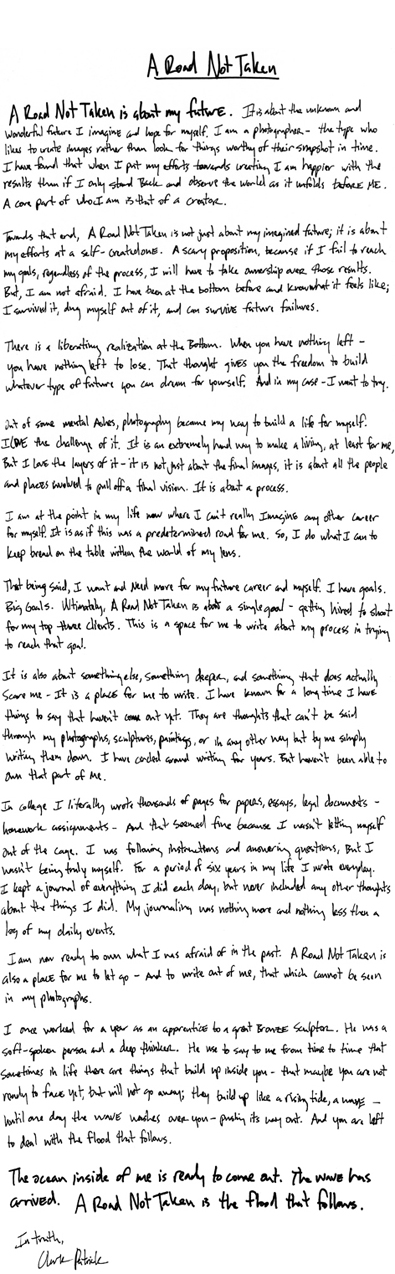 A Road Not Taken
A Road Not Taken is about my future. It is about the unknown and
wonderful future I imagine and hope for myself. I am a photographer - the type who
likes to create images rather than look for things worthy of their snapshot in time.
I have found that when I put my efforts towards creating I am happier with the
results than if I only stand Back and observe the world as it unfolds before ME.
A core part of who I am is that of a creator.
Towards that end, A Road Not Taken is not just about my imagined future; it is about
my efforts at a self-created one. A scary proposition, because if I fail to reach
my goals, regardless of the process, I will have to take ownership over those results.
But, I am not afraid. I have been at the bottom before and know what it feels like;
I survived it, dug myself out of it, and can survive future failures.
There is a liberating realization at the Bottom. When you have nothing left -
you have nothing left to lose. That thought gives you the freedom to build
whatever type of future you can dream for yourself. And in my case - I want to try.
Out of some mental Ashes, photography became my way to build a life for myself.
I LOVE the challenge of it. It is an extremely hard way to make a living, at least for me,
But I love the layers of it - it is not just about the final images, it is about all the people
and places involved to pull off a final vision. It is about a process.
I am at the point in my life now where I can't really Imagine any other career
for myself. It is as if this was a predetermined road for me. So, I do what I can to
keep bread on the table within the world of my lens.
That being said, I want and Need more for my future career and myself. I have goals.
Big Goals. Ultimately, A Road Not Taken is about a single goal - getting hired to shoot
for my top three clients. This is a space for me to write about my process in trying
to reach that goal.
It is also about something else, something deeper, and something that does actually
scare me - It is a place for me to write. I have known for a long time I have
things to say that haven't come out yet. They are thoughts that can't be said
through my photographs, sculptures, paintings, or in any other way but by me simply
writing them down. I have circled around writing for years. But haven't been able to
own that part of Me.
In college I literally wrote thousands of pages for papers, essays, legal documents -
homework assignments - And that seemed fine because I wasn't letting myself
out of the cage. I was following instructions and answering questions, But I
wasn't being truly myself. For a period of six years in my life I wrote everyday.
I kept a journal of everything I did each day, but never included any other thoughts
about the things I did. My journaling was nothing more and nothing less then a
log of my daily events.
I am now ready to own what I was afraid of in the past. A Road Not Taken is
also a place for me to let go - And to write out of me, that which cannot be seen
in my photographs.
I once worked for a year as an apprentice to a great Bronze Sculptor. He was a
soft-spoken person and a deep thinker. He use to say to me from time to time that
sometimes in life there are things that build up inside you - that maybe you are not
ready to face yet, but will not go away; they build up like a rising tide, a wave -
until one day the wave washes over you - pushing its way out. And you are left
to deal with the flood that follows.
The ocean inside of me is ready to come out. The wave has
arrived. A Road Not Taken is the flood that follows.
In truth,
Clark Patrick